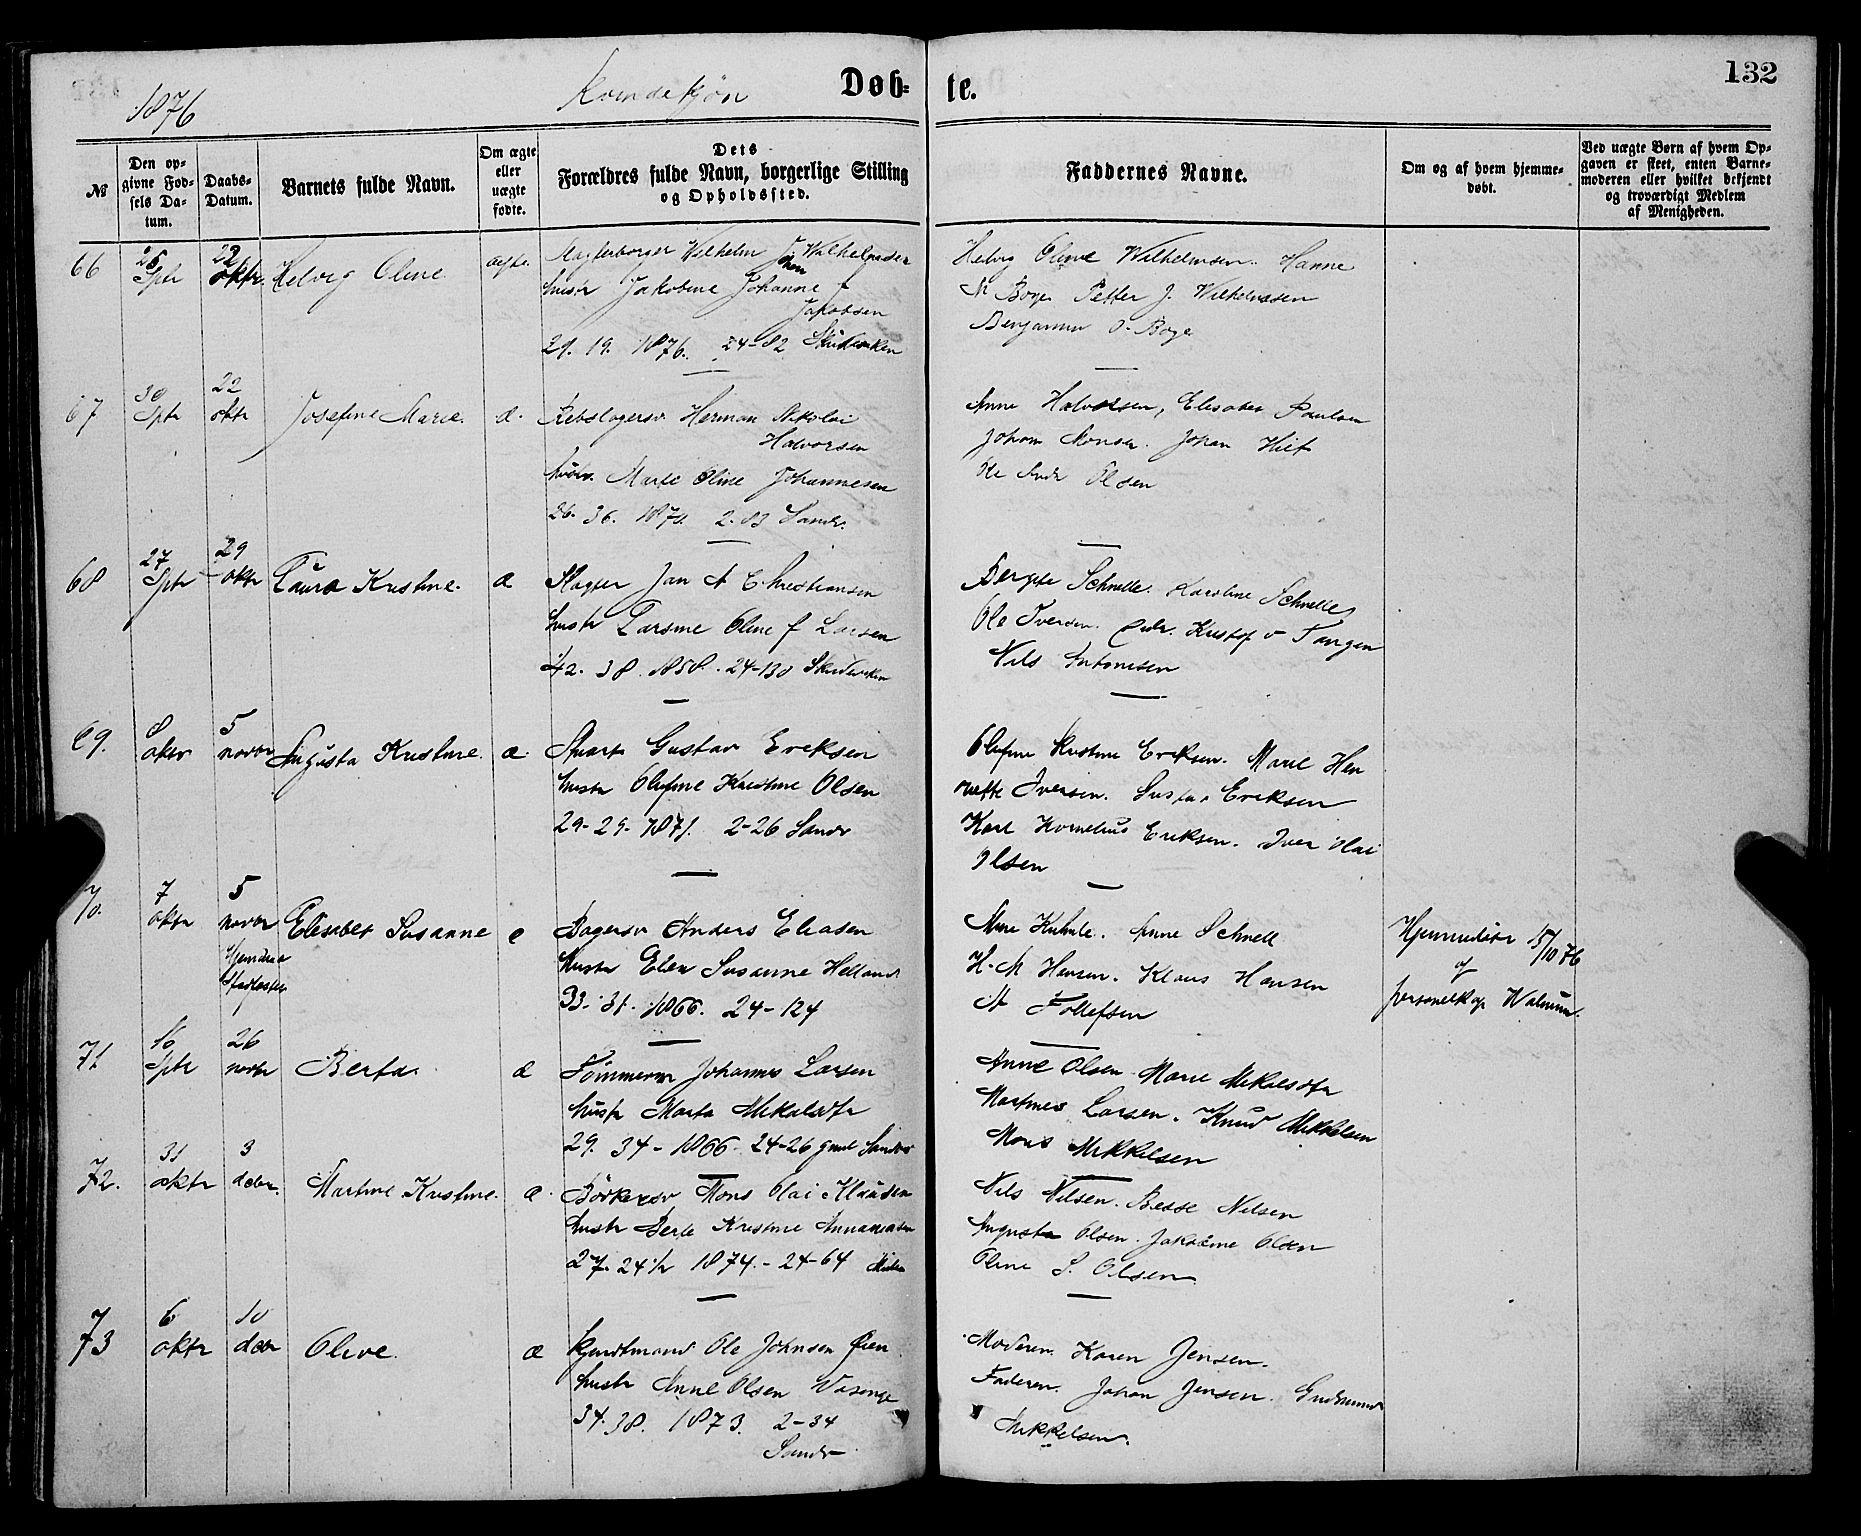 132
1876 Kvindekjøn Døb= te.
№
Den op=
givne Fød=
sels Da=
tum.
Daabs=
Datum.
Barnets fulde Navn.
Om ægte
eller
uægte
fødte.
Dets
Forældres fulde Navn, borgerlige Stilling
og Opholdssted.
Faddernes Navne.
Om og af hvem hjemme=
døbt.
Ved uægte Børn af hvem Op=
gaven er skeet, enten Barne=
moderen eller hvilket bekjendt
og troværdigt Medlem
af Menigheden.
66
Sptr
22 oktr
Helvig Oline
ægte
Wilhelm J Wilhelmsen
hustr Jakobine Johanne f
Jakobsen
29. 19. 1876. 24-82
Helvig Oline Wilhelmsen. Hanne
M Boge Petter J. Wilhelmsen
Benjamin O. Boge
67
30 Sptr
22 oktr
Josefine Marie.
æ.
Rebslagersv Herman Nikolai
Halvorsen
hustr. Marte Oline Johannesen
26. 36. 2. 83 Sandv.
Anne Halvorsen, Elisabet Paulsen
Johan Monsen. Johan
Ole Andr Olsen
68
27 Sptr
29 oktr
Laura Kristine.
æ
Slagter Jan A Christiansen
hustr Larsine Oline f Larsen
42. 38. 1858. 24-130
Bergete Schnelle. Karoline Schnelle
Ole Iversen. Kristof v Tangen
Nils Antonisen
69.
8 oktr
5 novbr
Augusta Kristine.
æ.
Gustav Eriksen
hustr Olufine Kristine Olsen
29-29- 1871. 2-26 Sandv
Olufine Kristine Eriksen. Marie Hen
riette Iversen. Gustav Eriksen
Karl Kornelius Eriksen. Iver Olai
Olsen
70.
7 oktr
5 novbr
Elisabet Susanne
Bagersv Anders Eliasen
hustr Elen Susanne Helland
33. 31. 1866. 24-124
Anne Schnell
H. M Hansen. Klaus Hansen
A Tollefsen
Hjemmedøbt 15/10 76
af
personelkap
71
16 Sptr
26 novbr
Berta.
æ
Tømmerm Johannes Larsen
hustr Marta Mikalsdtr
29. 34- 1866. 24-26
Anne Olsen Marie Mikalsdtr
Martines Larsen. Knud Mikkelsen
Mons Mikkelsen
72.
31 oktr
3 decbr.
Martine Kristine.
æ.
Bødkersv Mons Olai Klausen
hustr Berte Kristine
27. 24½ 1874.- 24-64
Nils Nilsen. Besse Nilsen
Augusta Olsen. Jakobine Olsen
Oline S. Olsen
73
6 oktr
10 decbr
Olive.
æ
Ole Johnsen Øien
hustr Anne Olsen
34. 38. 1873. 2-34
Sandv
Moderen. Karen Jensen.
Faderen. Johan Jensen. Gudmund
Mikkelsen.